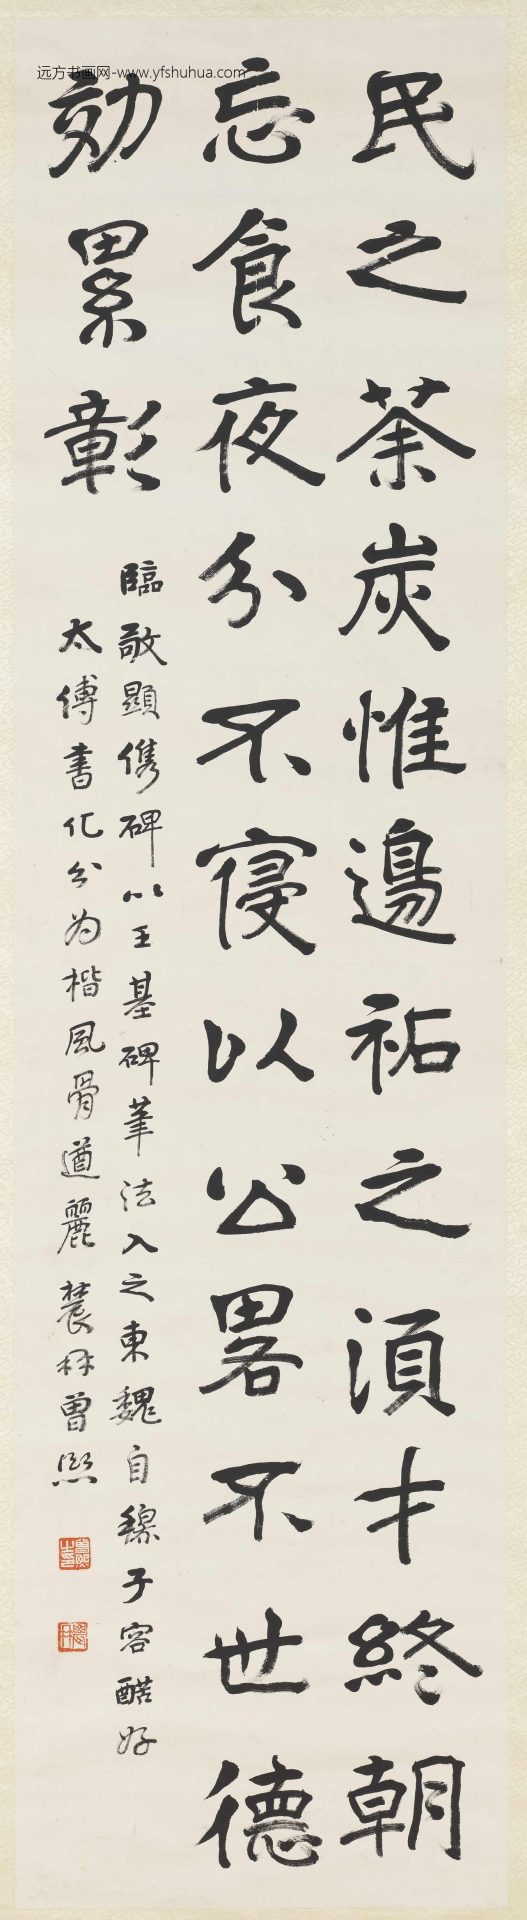 远方书画网-www.yfshuhua.com
民之荼炭惟邉祐之湏才終朝
忘食夜分不寑以公畧不世德
効累彰
臨敬顯儁碑以王基碑筆法入之東魏自穆子容酷好
太傅書化分为楷風骨遒麗農髯曾熙